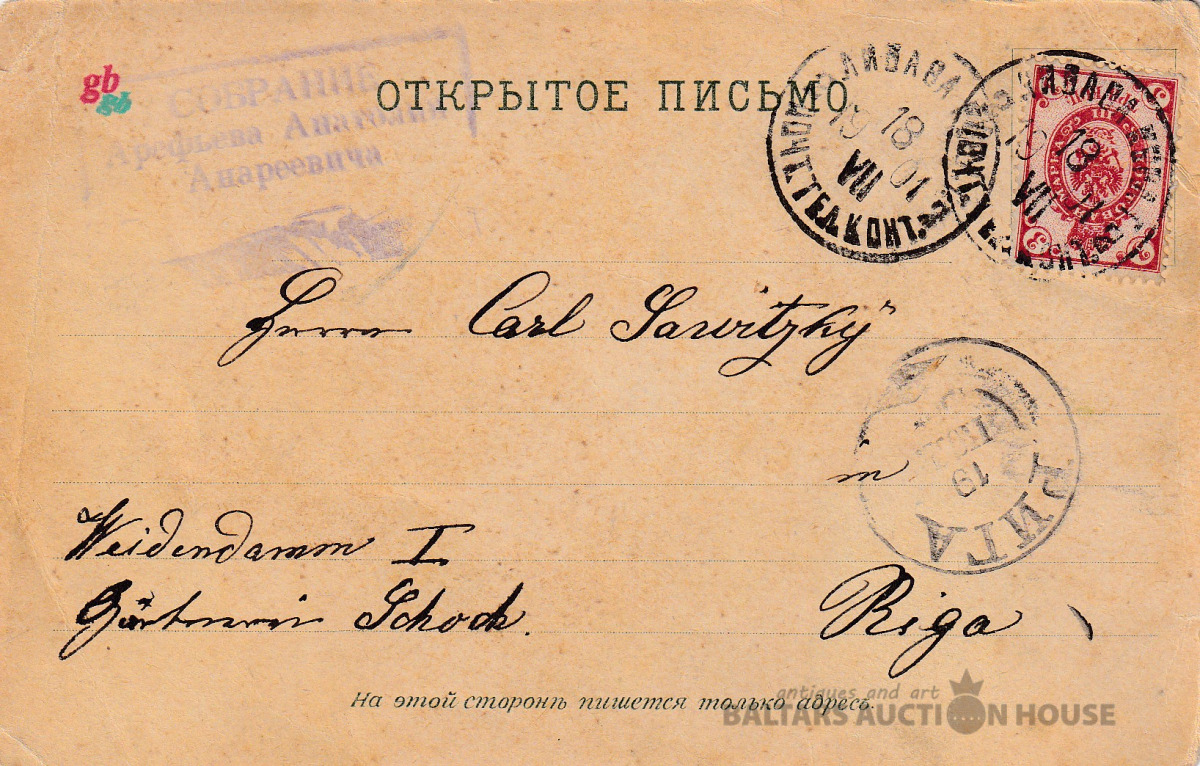 gb
gb
СОБРАНИЕ
Арефьева Анатолия
Андреевича
ОТКРЫТОЕ ПИСЬМО
ЛИБАВА
18
VII
01
ПОЧТ. ТЕЛ. КОНТ.
18
VII
Herrn Carl Sawitzky
in
19
РИГА
Weidendamm I
Gärtnerei Schoch.
Riga
На этой сторонѣ пишется только адресъ.
antiques and art
BALTARS AUCTION HOUSE